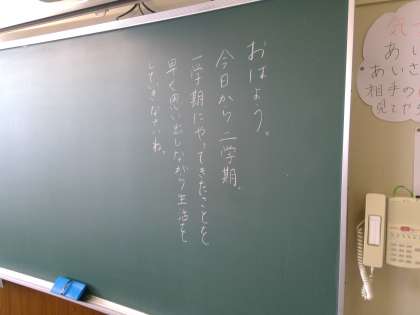 おはよう。
今日から二学期。
一学期にやってきたことを
早く思い出しながら生活を
していきなさいね。
気
あい
あいさ
相手の
見てや